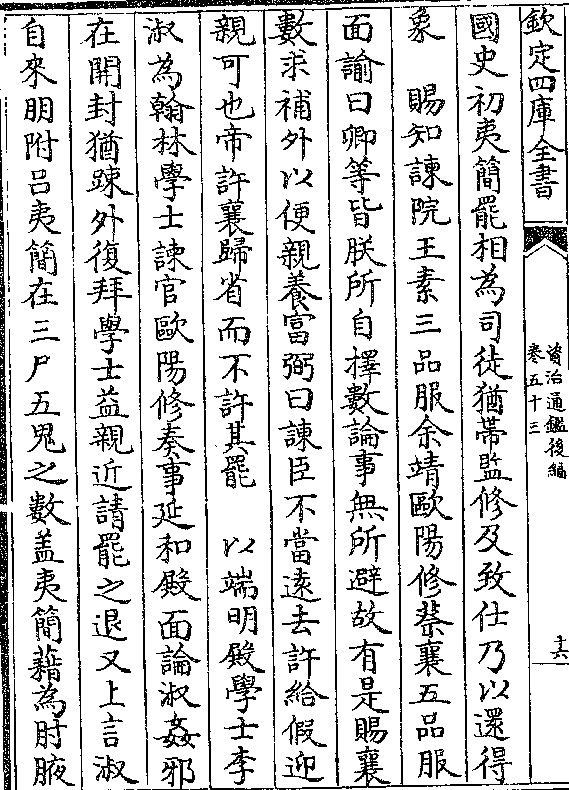 欽定四庫全書
資治通鑑後編
卷五十三
十六
國史初夷簡罷相為司徒猶帶監修及致仕乃以還得
象　賜知諫院王素三品服余靖歐陽修蔡襄五品服
面諭曰卿等皆朕所自擇數論事無所避故有是賜襄
數求補外以便親養富弼曰諫臣不當遠去許給假迎
親可也帝許襄歸省而不許其罷　以端明殿學士李
淑為翰林學士諫官歐陽修奏事延和殿面論淑姦邪
在開封猶踈外復拜學士益親近請罷之退又上言淑
自來朋附呂夷簡在三尸五鬼之數蓋夷簡藉為肘腋